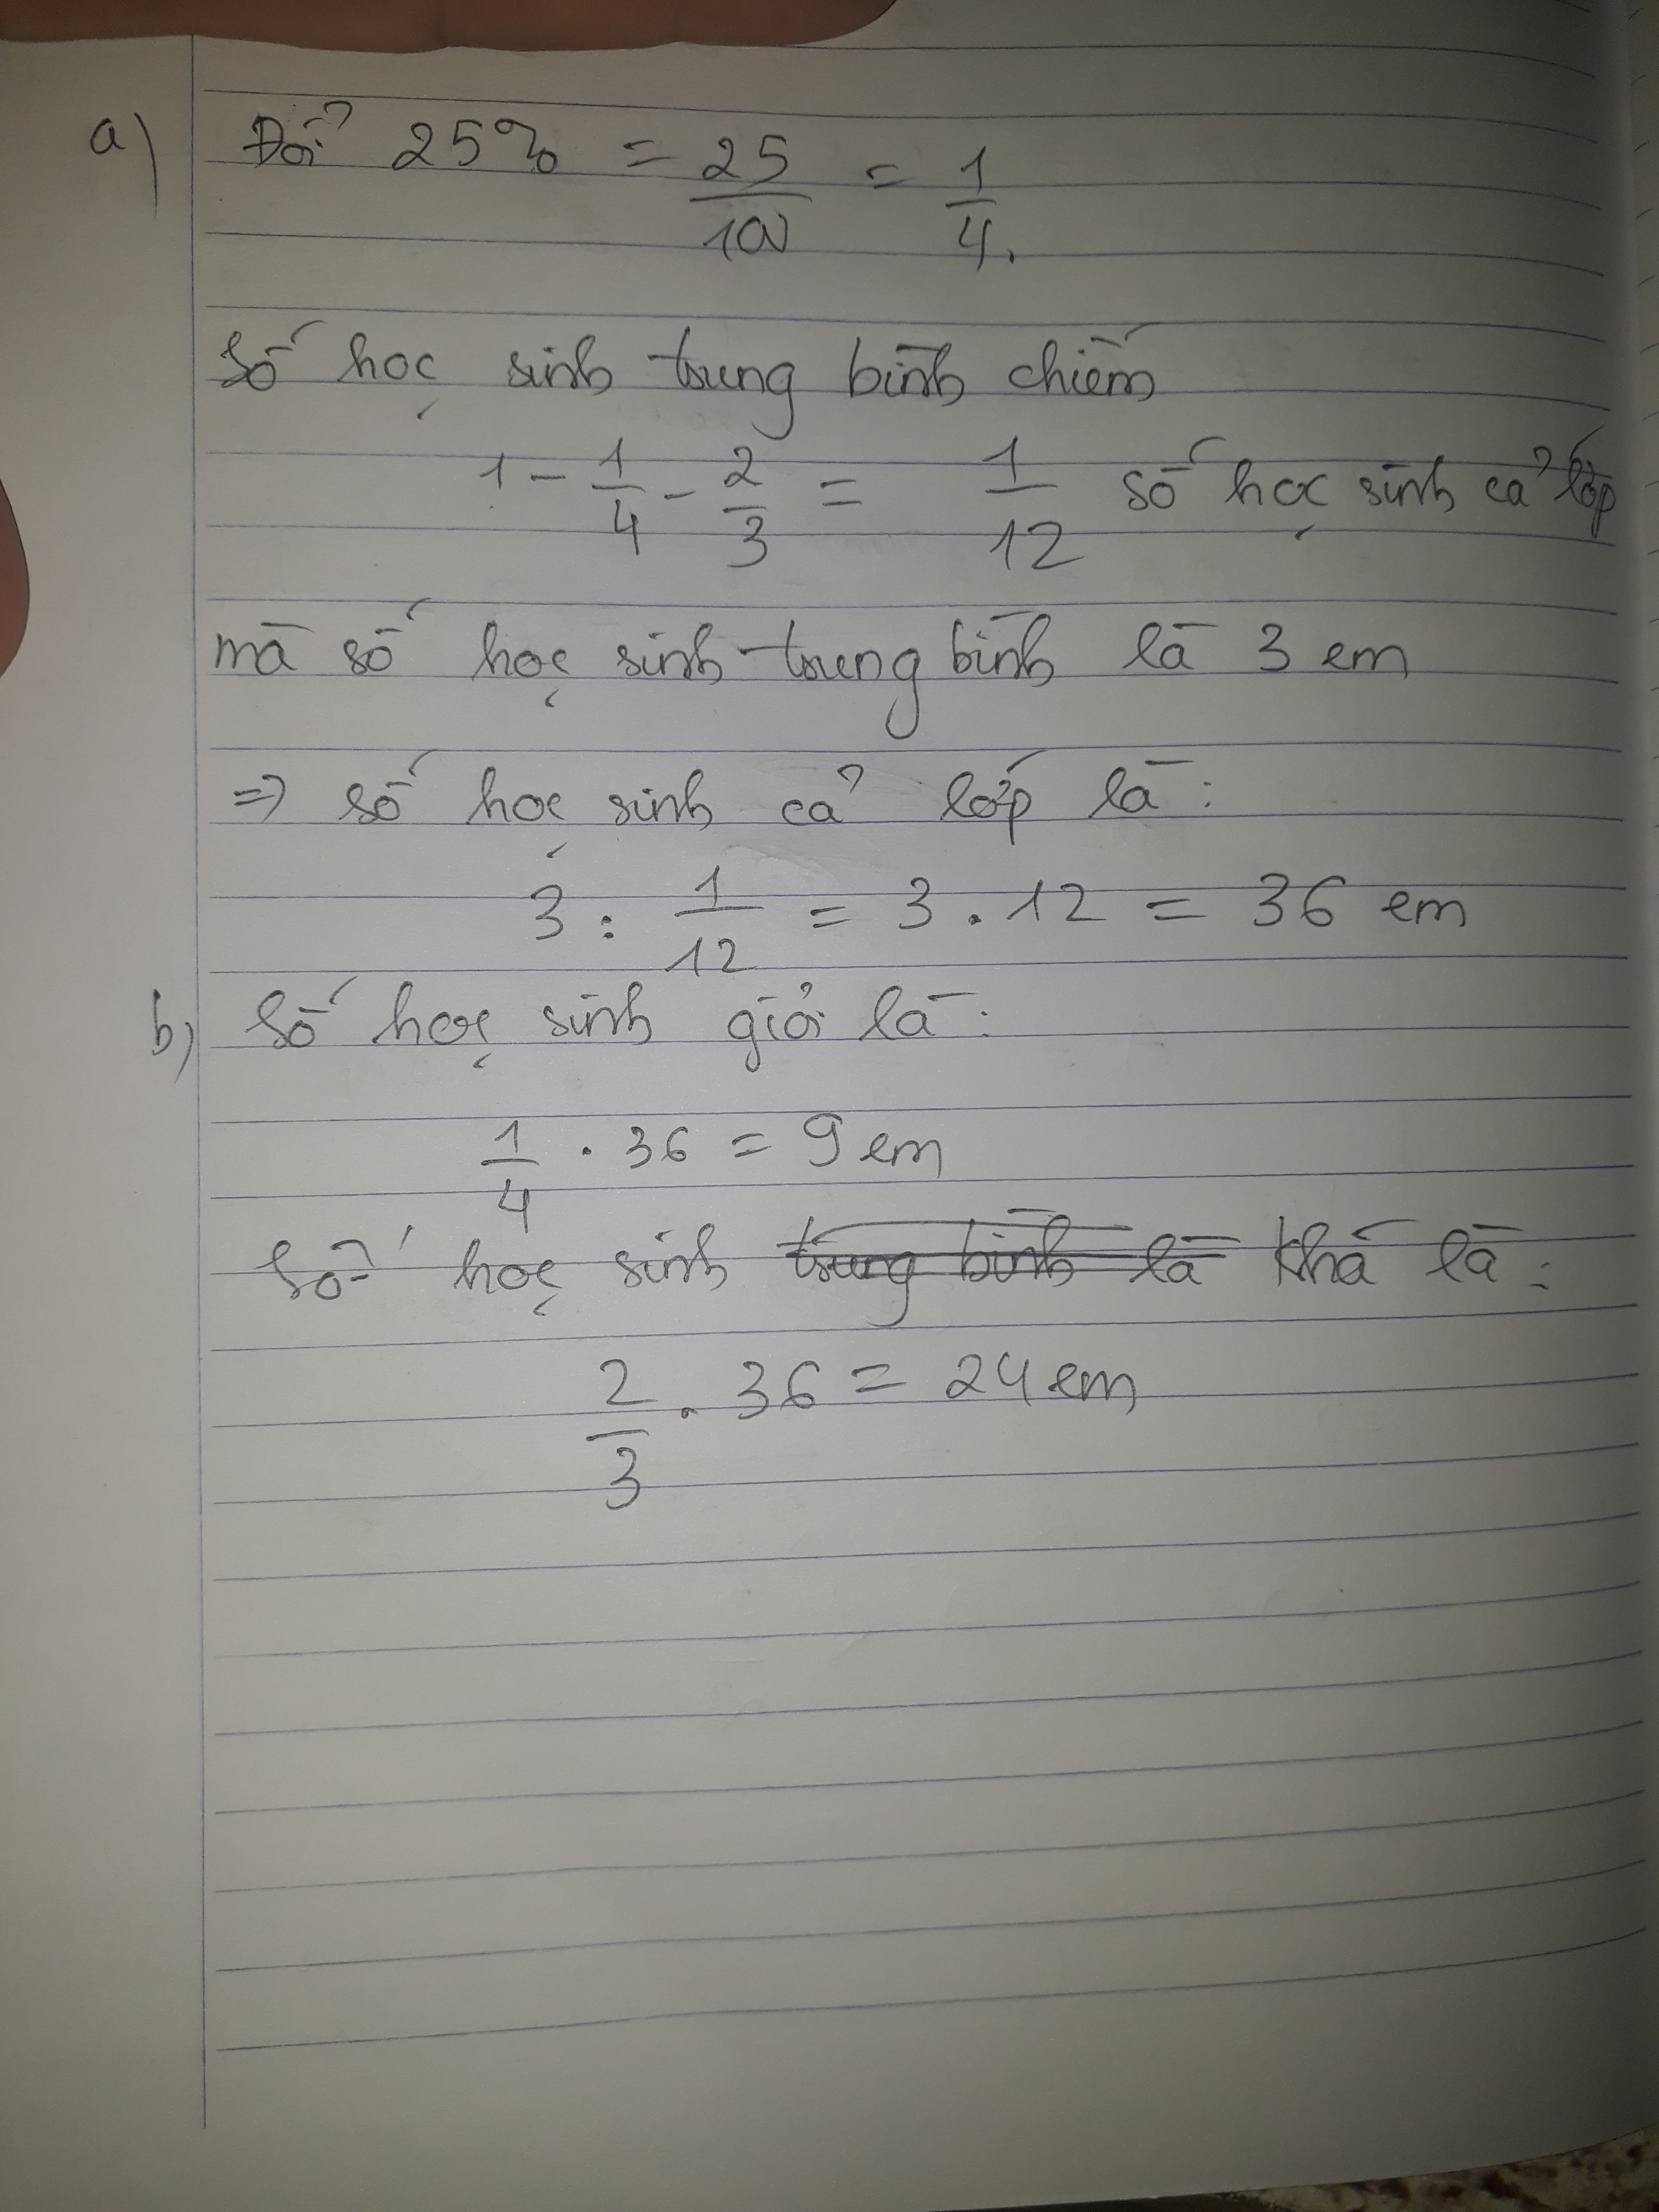 a) Đổi 25% = 25/100 = 1/4.
Số học sinh trung bình chiếm
1 - 1/4 - 2/3 = 1/12 số học sinh cả lớp
mà số học sinh trung bình là 3 em
=> số học sinh cả lớp là:
3 : 1/12 = 3 . 12 = 36 em
b) Số học sinh giỏi là:
1/4 . 36 = 9 em
Số học sinh trung bình là khá là:
2/3 . 36 = 24 em